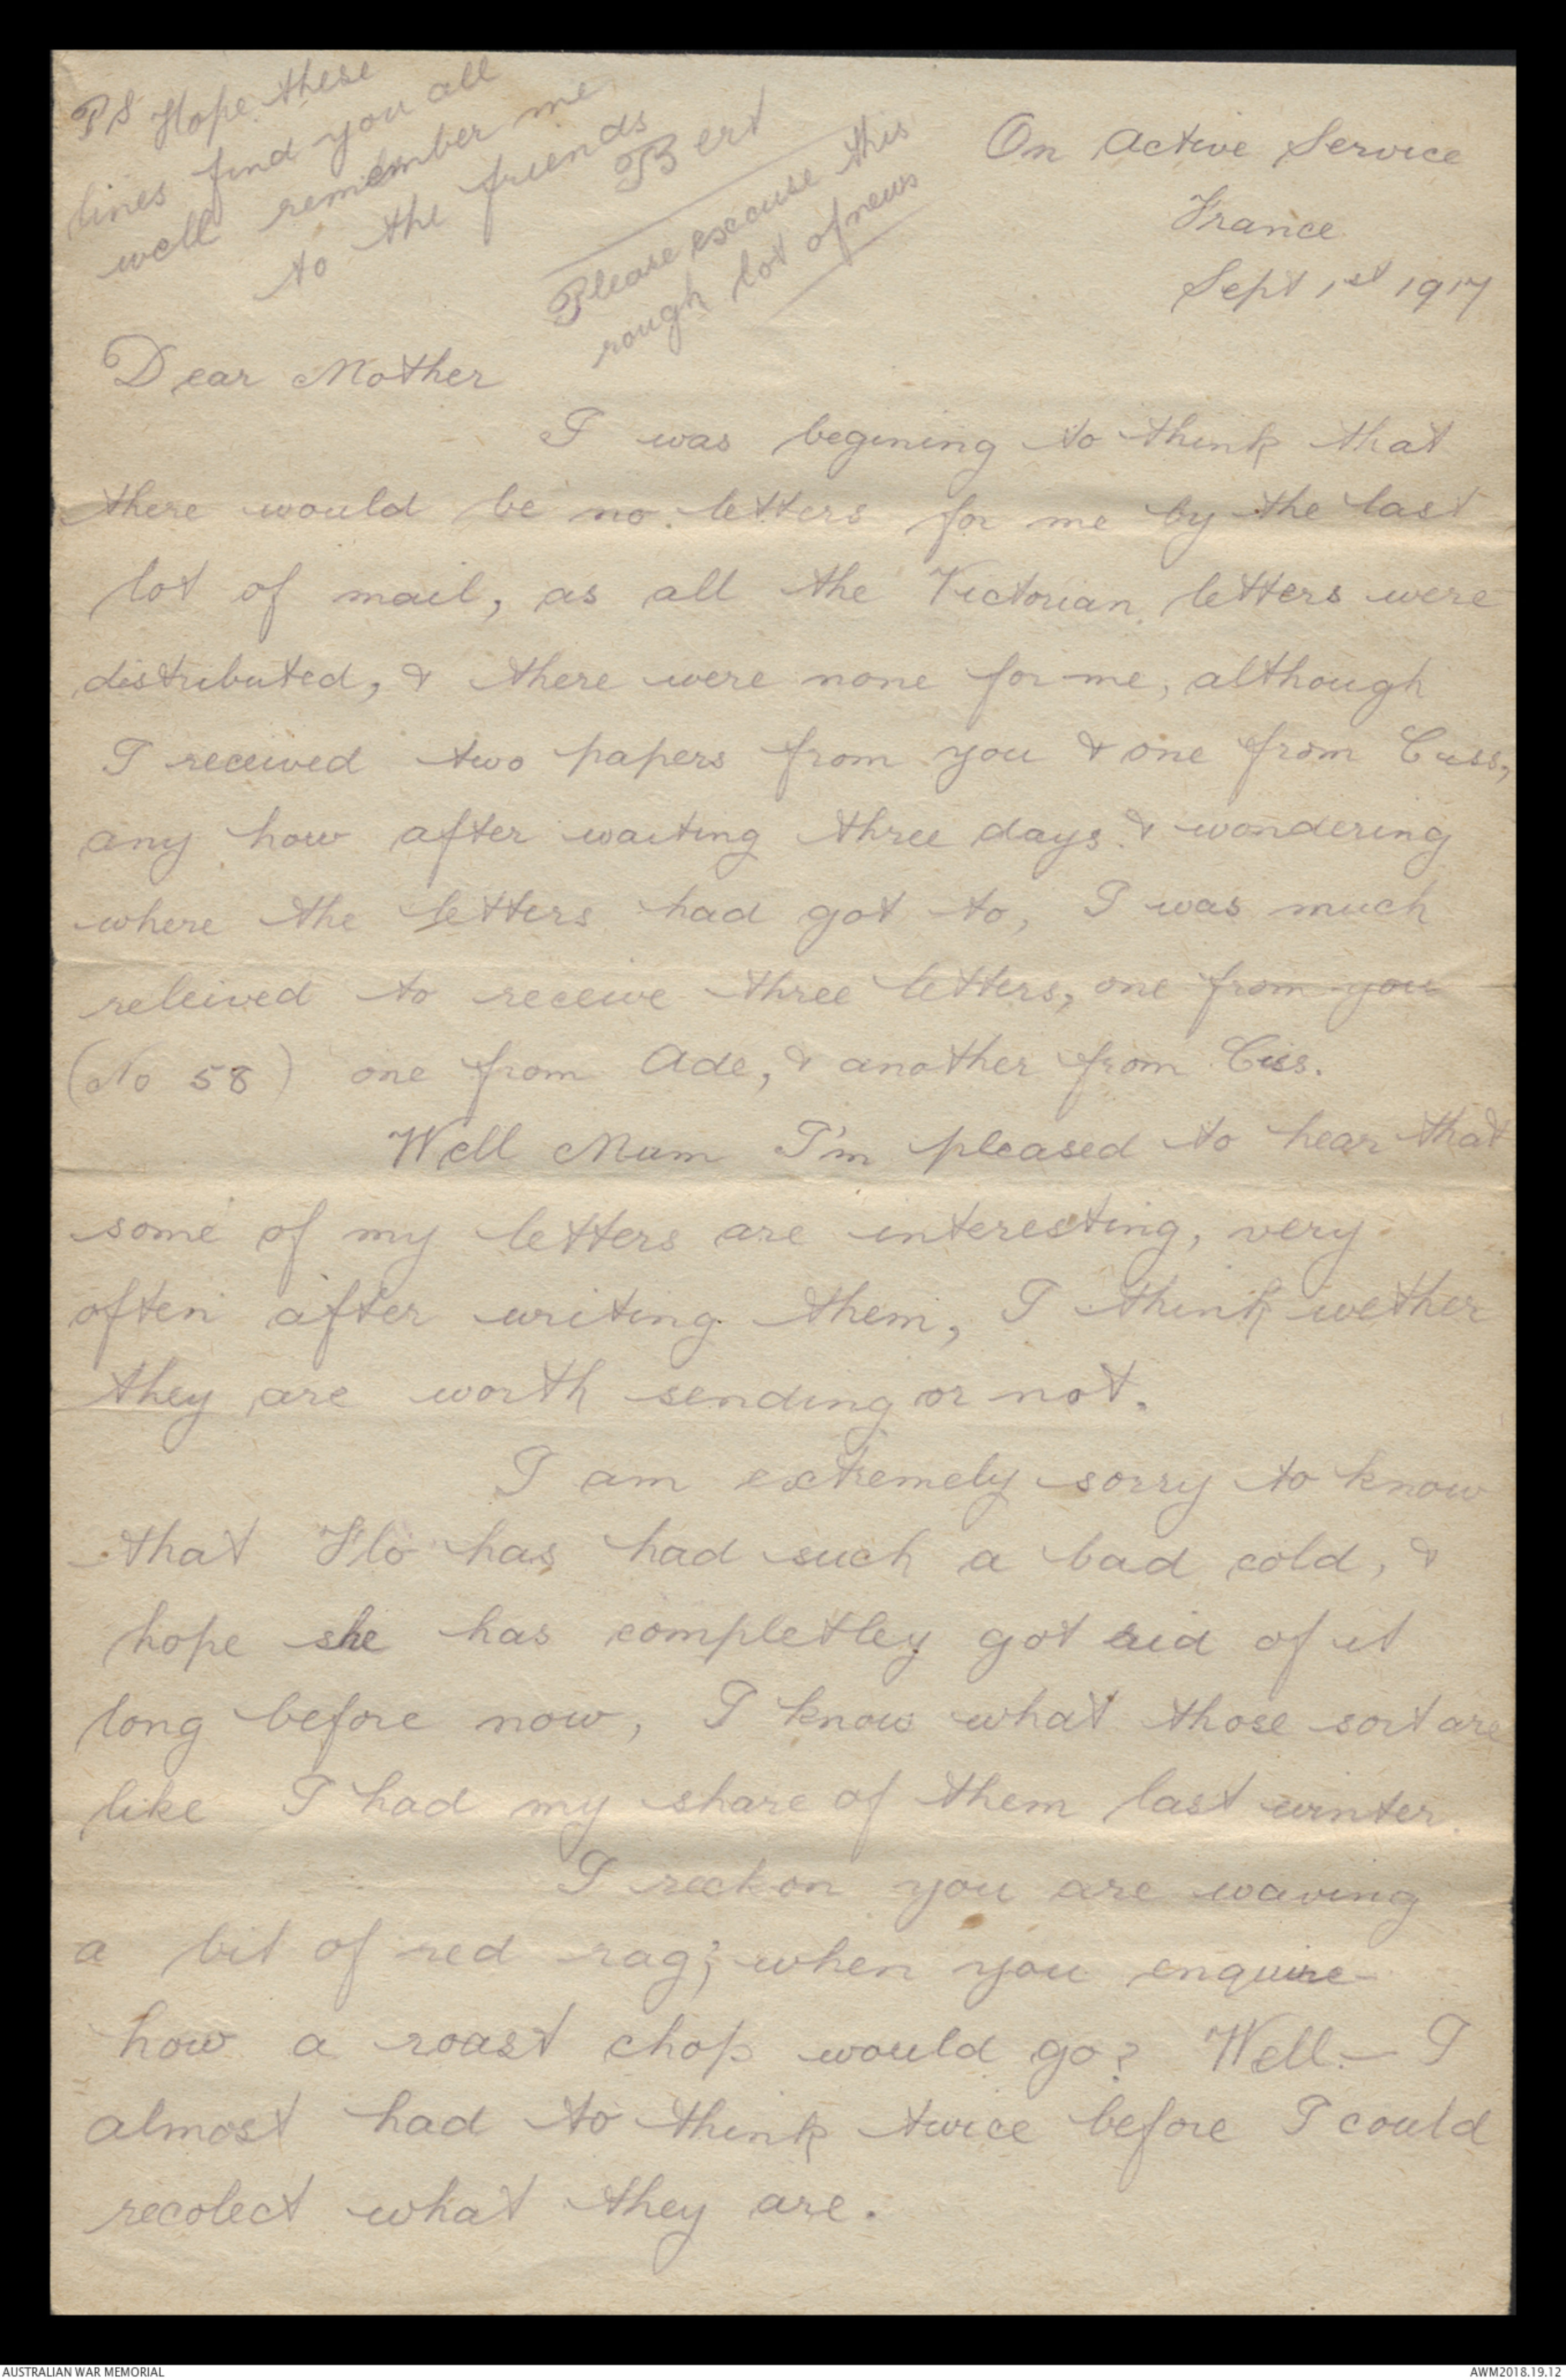 PS Hope these
lines find you all
well remember me
to the friends
Bert
Please excuse this
rough lot of news
On Active Service
France
Sept 1st 1917
Dear Mother
I was begining to think that
there would be no letters for me by the last
lot of mail, as all the Victorian letters were
distributed, & there were none for me, although
I received two papers from you & one from Ciss,
any how after waiting three days & wondering
where the letters had got to, I was much
releived to receive three letters, one from you
(No 58) one from Ade, & another from Ciss.
Well Mum I'm pleased to hear that
some of my letters are interesting, very
often after writing them, I think wether
they are worth sending or not.
I am extremely sorry to know
that Flo has had such a bad cold, &
hope she has completley got rid of it
long before now, I know what those sort are
like I had my share of them last winter.
I reckon you are waving
a bit of red rag; when you enquire
how a roast chop would go? Well— I
almost had to think twice before I could
recolect what they are.
AUSTRALIAN WAR MEMORIAL
AWM2018.19.12